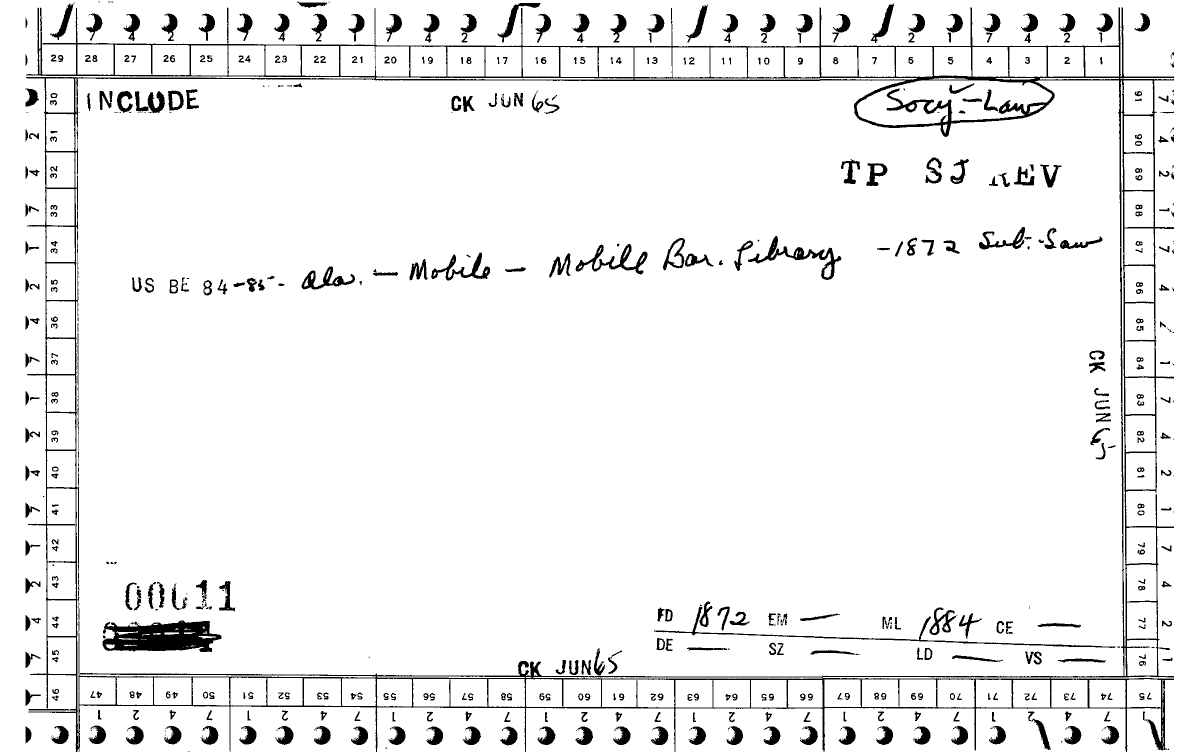 7 4 2 1 7 4 2 1 7 4 2 1 7 4 2 1 7 4 2 1 7 4 2 1 7 4 2 1
29 28 27 26 25 24 23 22 21 20 19 18 17 16 15 14 13 12 11 10 9 8 7 6 5 4 3 2 1
INCLUDE CK JUN 65 Socy.-Law
TP SJ REV
US BE 84-85- Ala. — Mobile — Mobile Bar. Library -1872 Sub.-Law
CK JUN 65
00011
FD 1872 EM — ML 1884 CE —
DE — SZ — LD — VS —
CK JUN 65
30 31 32 33 34 35 36 37 38 39 40 41 42 43 44 45 46
91 90 89 88 87 86 85 84 83 82 81 80 79 78 77 76
47 48 49 50 51 52 53 54 55 56 57 58 59 60 61 62 63 64 65 66 67 68 69 70 71 72 73 74 75
1 2 4 7 1 2 4 7 1 2 4 7 1 2 4 7 1 2 4 7 1 2 4 7 1 2 4 7